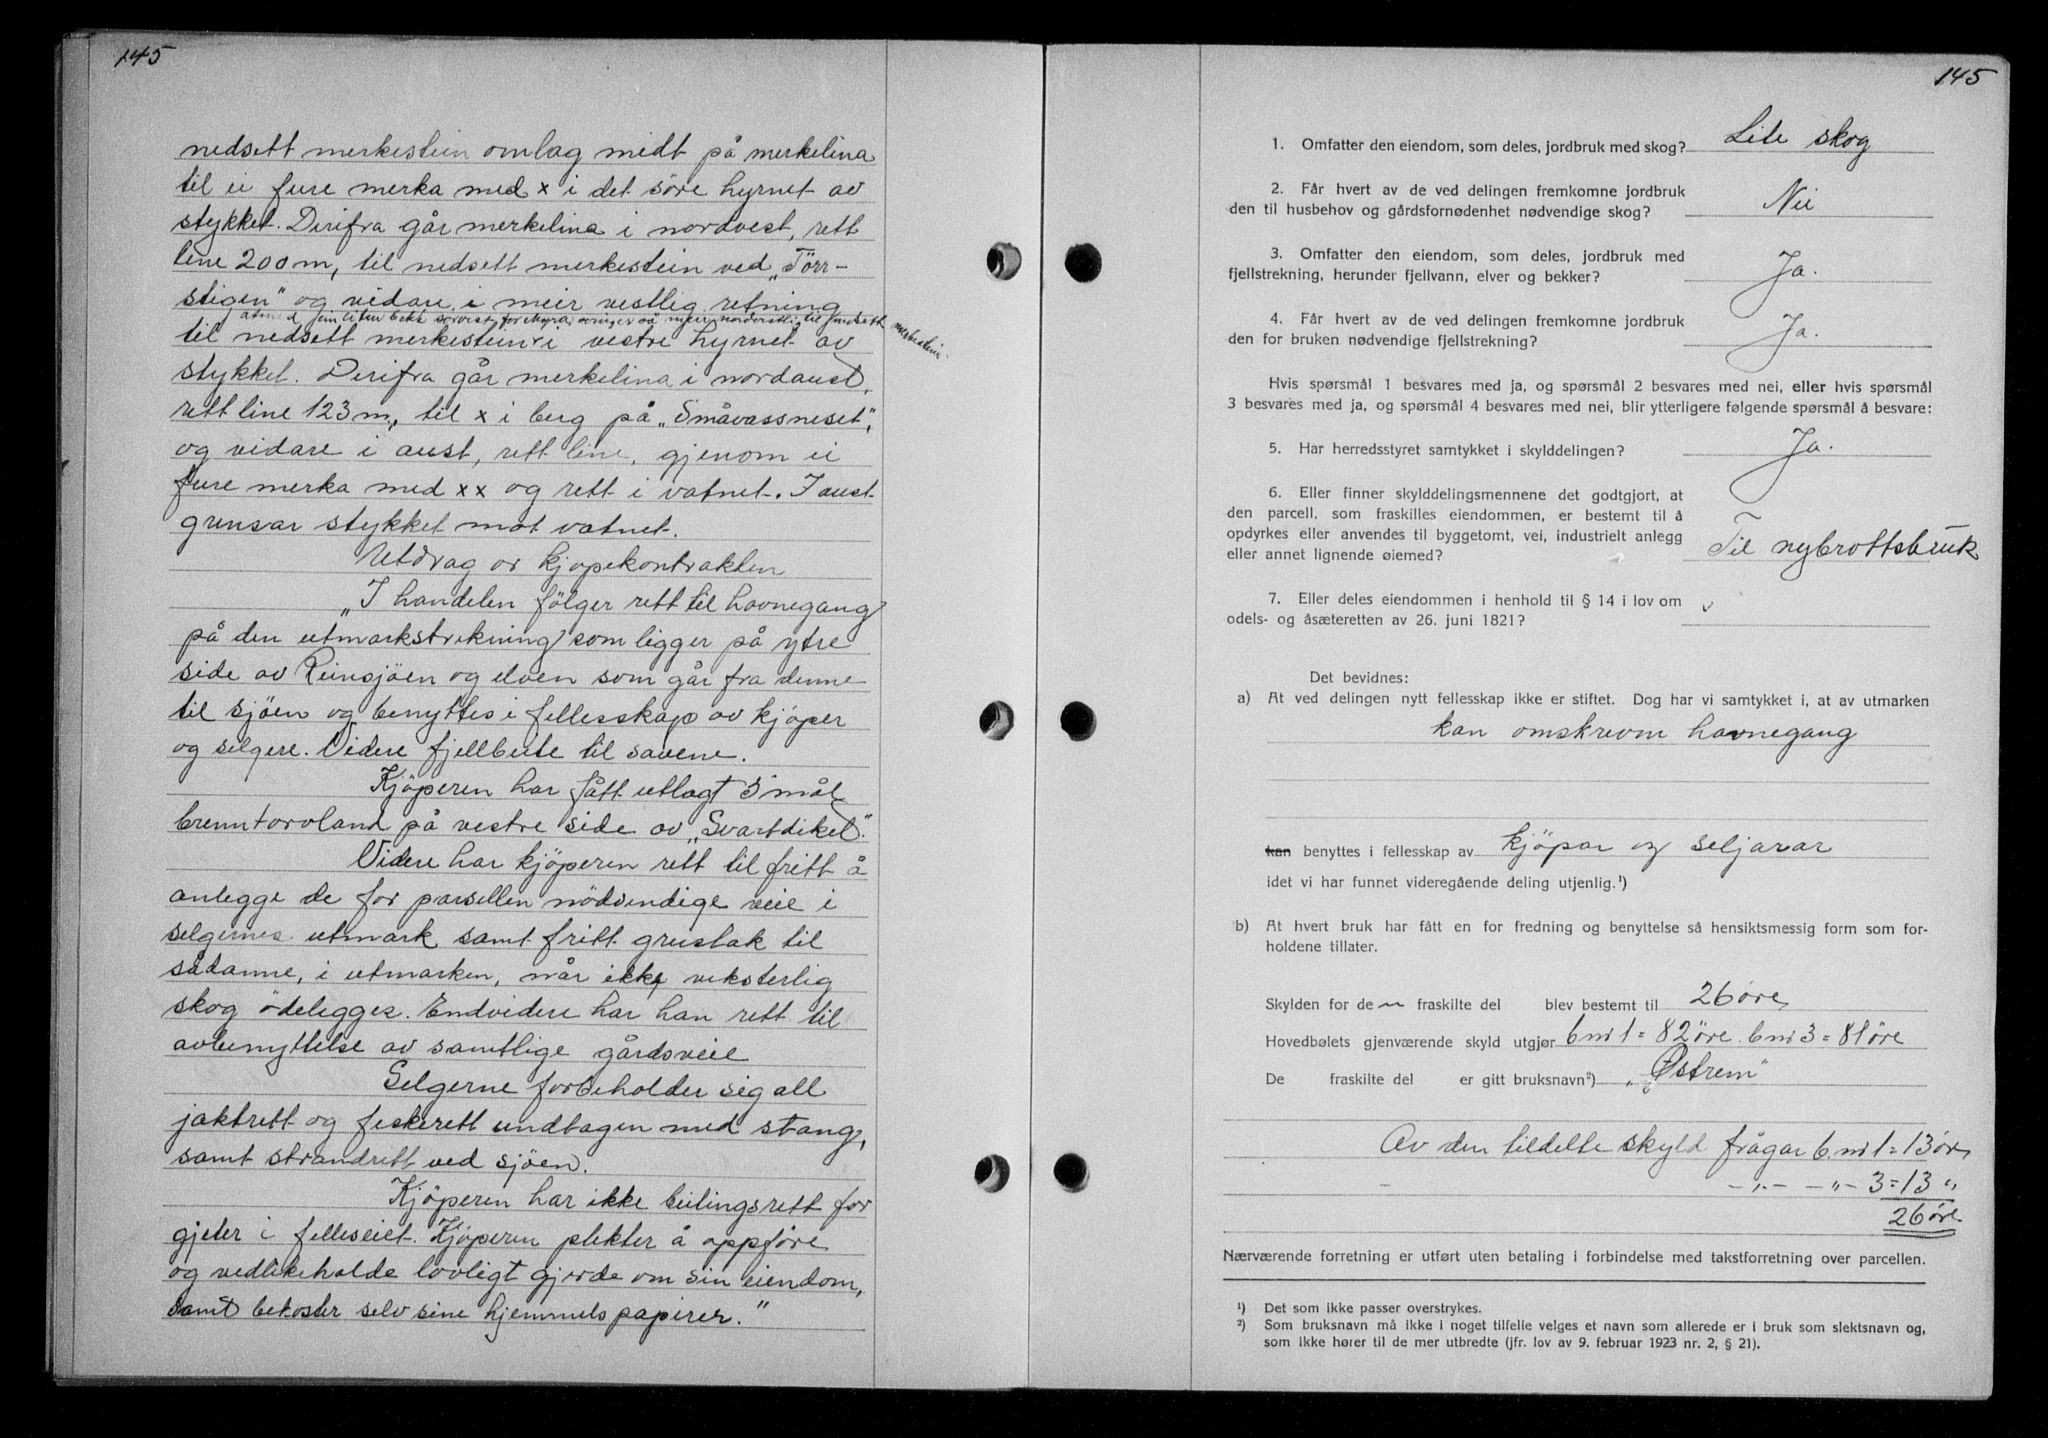 145
nedsett merkestein omlag midt på merkelina
til ei fure merka med x i det søre hyrnet av
stykket. Derifra går merkelina i nordvest, rett
line 200 m, til nedsett merkestein ved „Törr-
stigen" og vidare i meir vestlig retning
til nedsett merkestein i vestre hyrnet av
merkestein.
stykket. Derifra går merkelina i nordaust,
rett line 123 m., til x i berg på „Småvassneset",
og vidare i aust, rett line, gjenom ei
fure merka med xx og rett i vatnet. I aust
grensar stykket mot vatnet.
Utdrag or kjøpekontrakten
„I handelen fölger rett til havnegang
på den utmarkstrekning som ligger på ytre
side av Reinsjöen og elven som går fra denne
til sjöen og benyttes i fellesskap av kjöper
og selgere. Videre fjellbeite til sauene.
Kjöperen har fått utlagt 5 mål
brenntorvland på vestre side av „Svartdiket".
Videre har kjöperen rett til fritt å
anlegge de for parsellen nödvendige veie i
selgernes utmark samt fritt grustak til
sådanne, i utmarken, når ikke veksterlig
skog ödelegges. Endvidere har han rett til
avbenyttelse av samtlige gårdsveie
Selgerne forbeholder sig all
jaktrett og fiskerett undtagen med stang,
samt strandrett ved sjöen.
Kjöperen har ikke beitingsrett for
gjeter i felleseiet. Kjöperen plikter å oppføre
og vedlikeholde lovligt gjerde om sin eiendom,
samt bekoster selv sine hjemmelspapirer."
145
1. Omfatter den eiendom, som deles, jordbruk med skog? Lite skog
2. Får hvert av de ved delingen fremkomne jordbruk
den til husbehov og gårdsfornødenhet nødvendige skog? Nei
3. Omfatter den eiendom, som deles, jordbruk med
fjellstrekning, herunder fjellvann, elver og bekker? Ja.
4. Får hvert av de ved delingen fremkomne jordbruk
den for bruken nødvendige fjellstrekning? Ja.
Hvis spørsmål 1 besvares med ja, og spørsmål 2 besvares med nei, eller hvis spørsmål
3 besvares med ja, og spørsmål 4 besvares med nei, blir ytterligere følgende spørsmål å besvare:
5. Har herredsstyret samtykket i skylddelingen? Ja.
6. Eller finner skylddelingsmennene det godtgjort, at
den parcell, som fraskilles eiendommen, er bestemt til å
opdyrkes eller anvendes til byggetomt, vei, industrielt anlegg
eller annet lignende øiemed? Til nybrottsbruk
7. Eller deles eiendommen i henhold til § 14 i lov om
odels- og åsæteretten av 26. juni 1821?
Det bevidnes:
a) At ved delingen nytt fellesskap ikke er stiftet. Dog har vi samtykket i, at av utmarken
kan omskrevne havnegang
kan benyttes i fellesskap av kjöpar og seljarar
idet vi har funnet videregående deling utjenlig.¹)
b) At hvert bruk har fått en for fredning og benyttelse så hensiktsmessig form som for-
holdene tillater.
Skylden for de fraskilte del blev bestemt til 26 øre
Hovedbølets gjenværende skyld utgjør bnr 1 = 82 øre. bnr 3 = 81 øre
De fraskilte del er gitt bruksnavn²) „Østrem"
Av den tildelte skyld frågår b.nr 1 = 13 øre
- „ - - „ - 3 = 13 „
26 øre
Nærværende forretning er utført uten betaling i forbindelse med takstforretning over parcellen.
¹) Det som ikke passer overstrykes.
²) Som bruksnavn må ikke i noget tilfelle velges et navn som allerede er i bruk som slektsnavn og,
som ikke hører til de mer utbredte (jfr. lov av 9. februar 1923 nr. 2, § 21).